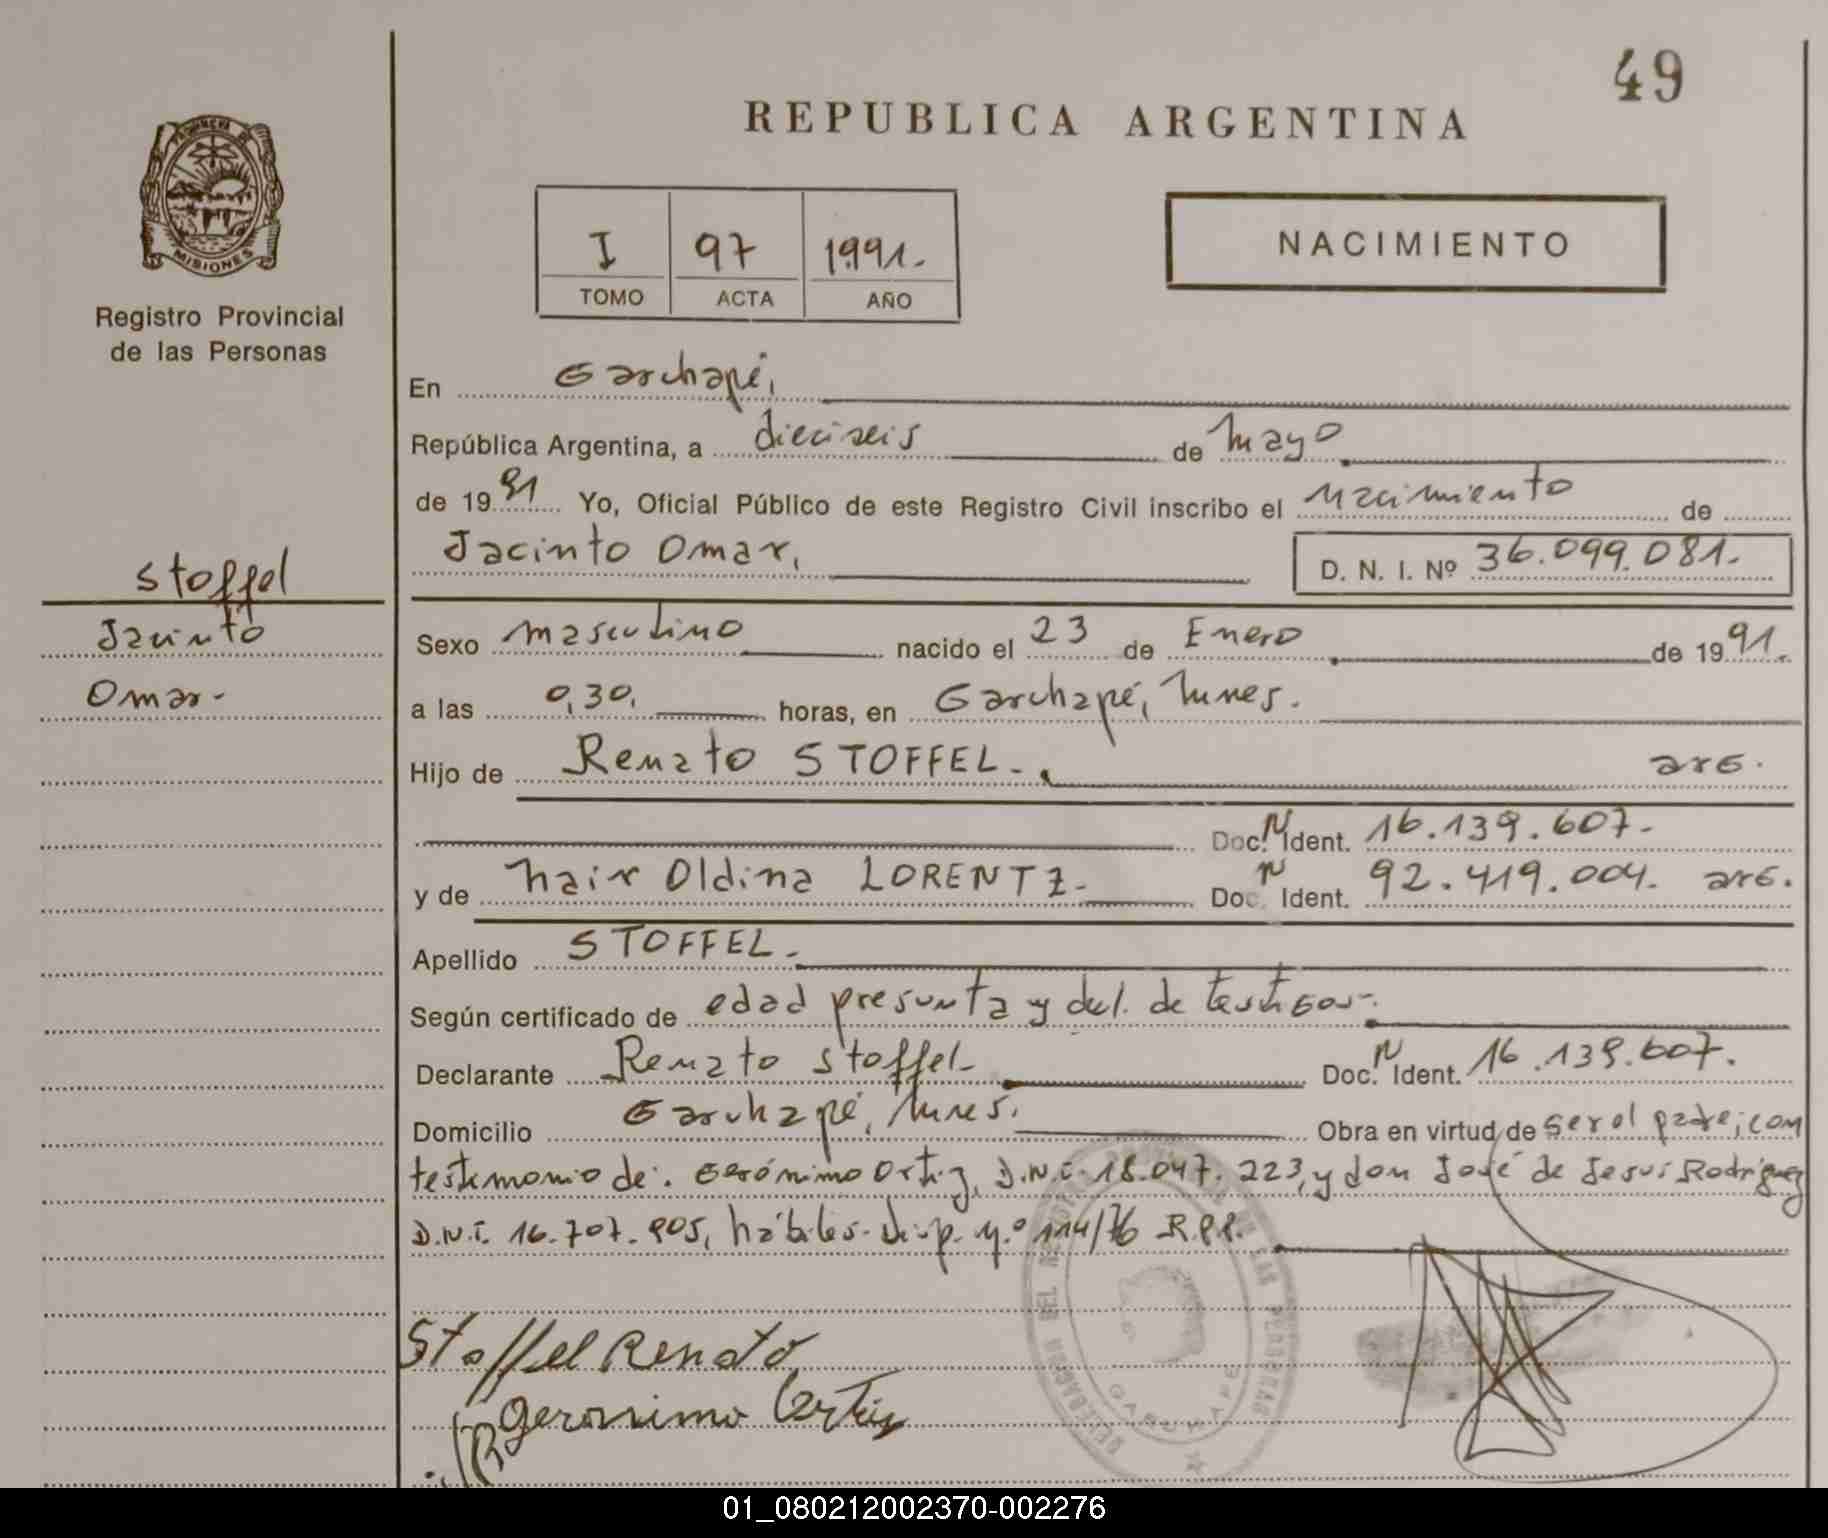 49
REPUBLICA ARGENTINA
PROVINCIA DE
MISIONES
Registro Provincial
de las Personas
I 97 1991.
TOMO ACTA AÑO
NACIMIENTO
En Garuhapé,
República Argentina, a dieciseis de mayo
de 1991 Yo, Oficial Público de este Registro Civil inscribo el nacimiento de
Jacinto Omar, D. N. I. Nº 36.099.081.-
Stoffel
Jacinto
Omar.-
Sexo masculino nacido el 23 de Enero de 1991.
a las 0,30, horas, en Garuhapé, Mnes.
Hijo de Renato STOFFEL.- arg.
Doc. N Ident. 16.139.607.-
y de Nair Oldina LORENTZ.- Doc. N Ident. 92.419.004. arg.
Apellido STOFFEL.-
Según certificado de edad presunta y decl. de testigos.-
Declarante Renato Stoffel.- Doc. N Ident. 16.139.607.
Domicilio Garuhapé, Mnes. Obra en virtud de ser el padre; con
testimonio de: Gerónimo Ortiz, D.N.I. 18.047.223, y don José de Jesus Rodriguez
D.N.I. 16.707.905, hábiles- Disp. Nº 114/76 R.P.P.
Stoffel Renato
Geronimo Ortiz
GARUHAPE
01_080212002370-002276